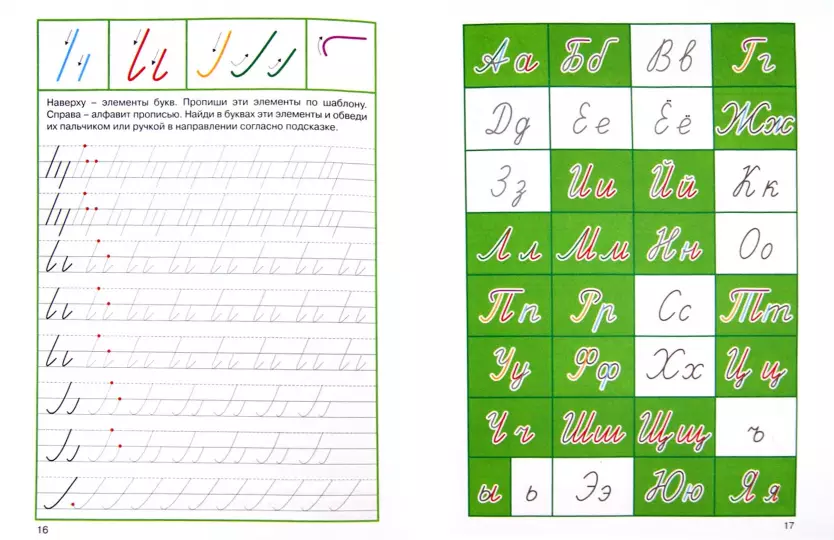 Наверху – элементы букв. Пропиши эти элементы по шаблону.
Справа – алфавит прописью. Найди в буквах эти элементы и обведи
их пальчиком или ручкой в направлении согласно подсказке.
16
Аа Бб Вв Гг
Дд Ее Ёё Жж
Зз Ии Йй Кк
Лл Мм Нн Оо
Пп Рр Сс Тт
Уу Фф Хх Цц
Чч Шш Щщ ъ
ы ь Ээ Юю Яя
17